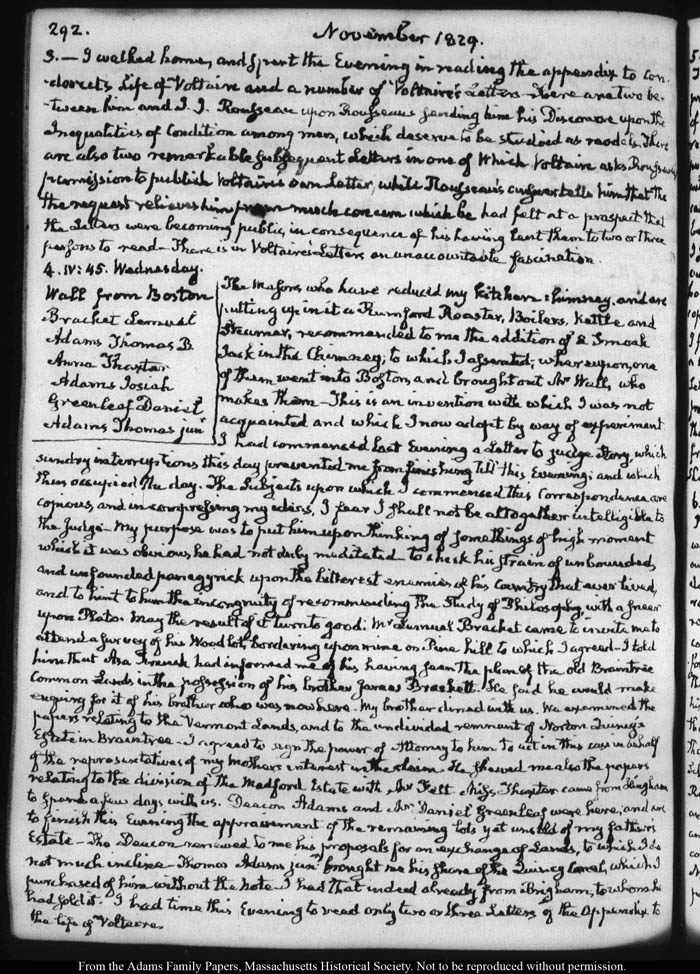 292.
November 1829.
3.— I walked home, and spent the Evening in reading the appendix to Con-
-dorcet's Life of Voltaire and a number of Voltaire's Letters There are two be-
-tween him and J. J. Rousseau upon Rousseau's sending him his Discourse upon the
Inequalities of Condition among men, which deserve to be studied as models. There
are also two remarkable subsequent Letters in one of which Voltaire asks Rousseau's
permission to publish Voltaire's own Letter, while Rousseau's answer tells him that the
the request relieves him from much concern which he had felt at a prospect that
the Letters were becoming public, in consequence of his having lent them to two or three
persons to read— There is in Voltaire's Letters an unaccountable fascination.
4. IV: 45. Wednesday.
Wall from Boston
Bracket Lemuel
Adams Thomas B.
Anna Thaxter
Adams Josiah
Greenleaf Daniel
Adams Thomas junr
The Masons, who have reduced my kitchen chimney, and are
putting up in it a Rumford Roaster, Boilers, Kettle and
Steamer, recommended to me the addition of a Smoak
Jack in the Chimney; to which I assented; whereupon, one
of them went into Boston and brought out Mr Wall, who
makes them— This is an invention with which I was not
acquainted and which I now adopt by way of experiment
I had commenced last Evening a Letter to Judge Story, which
sundry interruptions this day prevented me from finishing till this Evening; and which
thus occupied the day. The Subjects upon which I commenced this Correspondence are
copious, and in compressing my ideas, I fear I shall not be altogether intelligible to
the Judge— My purpose was to put him upon thinking of some things of high moment
which it was obvious, he had not duly meditated to check his strain of unbounded,
and unfounded panegyrick upon the bitterest enemies of his Country that ever lived,
and to hint to him the incongruity of recommending the Study of Philosophy, with a sneer
upon Plato. May the result of it turn to good. Mr Lemuel Bracket came to invite me to
attend a survey of his Wood lot, bordering upon mine on Pine hill to which I agreed— I told
him that Asa French had informed me of his having seen the plan of the old Braintree
Common Lands in the possession of his brother James Brackett. He said he would make
enquiry for it of his brother who was now here. My brother dined with us. We examined the
papers relating to the Vermont Lands, and to the undivided remnant of Norton Quincy's
Estate in Braintree— I agreed to sign the power of Attorney to him to act in this case in behalf
of the representatives of my Mother's interest in the claim. He shewed me also the papers
relating to the division of the Medford Estate with Mr Felt. Miss Thaxter came from Hingham
to spend a few days with us. Deacon Adams and Mr Daniel Greenleaf were here, and are
to finish this Evening the appraisement of the remaining lots yet unsold of my father's
Estate— The Deacon renewed to me his proposals for an exchange of Lands, to which I do
not much incline— Thomas Adams junr brought me his share of the Quincy Canal, which I
purchased of him without the Note— I had that indeed already from Brigham, to whom he
had sold it. I had time this Evening to read only two or three Letters of the Appendix to
the life of Voltaire.
From the Adams Family Papers, Massachusetts Historical Society. Not to be reproduced without permission.